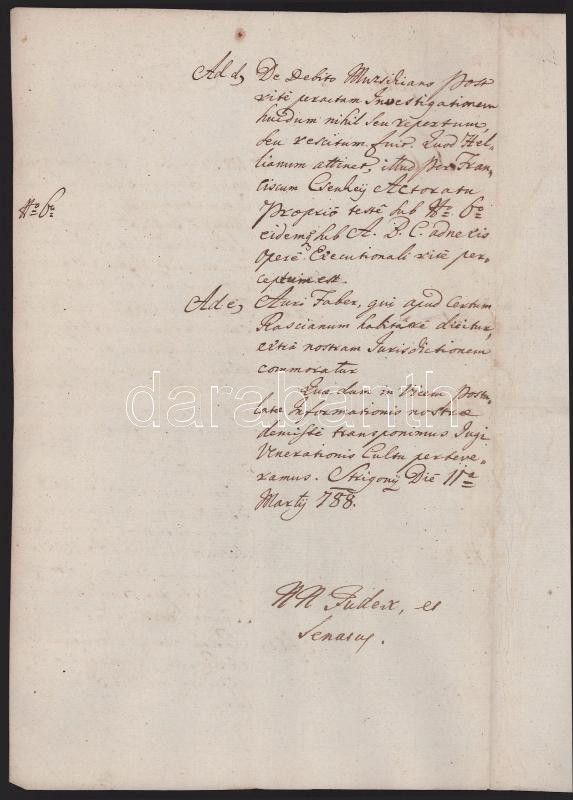 Ad d, De Debito Mursikiano post
rite peractam Investigationem
hucdum nihil seu repertum,
seu rescitum fuit. Quod Hel-
lianum attinet, illud per Fran-
ciscum Csenkeÿ Actoratu
Proprio teste sub Nro 6to
Nro 6to
eidemq sub A. B. C. adnexis
opere Executionali rite per-
ceptum est.
Ad e, Auri Faber, qui apud Certum
Rascianum habitare dicitur,
extra nostram Jurisdictionem
commoratur
Quae dum in Vicem Postu-
latae Informationis nostrae
demisse transponimus Jugi
Venerationis Cultu perseve-
ramus. Strigonÿ Die 11a
Martÿ 788.
darabanth
NN Judex, et
Senatus.